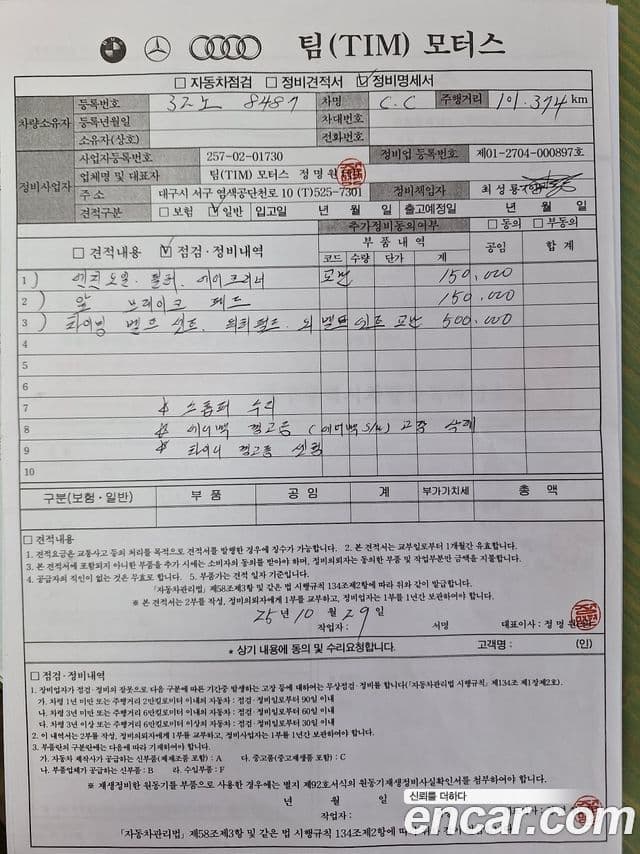 팀(TIM) 모터스
□ 자동차점검 □ 정비견적서 ☑ 정비명세서
차량소유자 등록번호 37노 8487 차명 C.C 주행거리 101,374 km
등록년월일 차대번호
소유자(상호) 전화번호
정비사업자 사업자등록번호 257-02-01730 정비업 등록번호 제01-2704-000897호
업체명 및 대표자 팀(TIM) 모터스 정 명 원
주 소 대구시 서구 염색공단천로 10 (T)525-7301 정비책임자 최 성 룡
견적구분 □ 보험 ☑ 일반 입고일 년 월 일 출고예정일 년 월 일
□ 견적내용 ☑ 점검·정비내역 추가정비동의여부 □ 동의 □ 부동의
부 품 내 역 공임 합 계
코드 수량 단가 계
1 ) 엔진오일. 필터. 에어크리너 교환 150,000
2 ) 앞 브레이크 패드 150,000
3 ) 타이밍 벨트 셋트. 워터펌프. 외 벨트 셋트 교환 500,000
4
5
6
7 수리
8 에어백 경고등 (에어백 S/W) 고장 삭제
9 타이어 경고등
10
구분(보험·일반) 부 품 공 임 계 부가가치세 총 액
□ 견적내용
1. 견적요금은 교통사고 등의 처리를 목적으로 견적서를 발행한 경우에 징수가 가능합니다. 2. 본 견적서는 교부일로부터 1개월간 유효합니다.
3. 본 견적서에 포함되지 아니한 부품을 추가 시에는 소비자의 동의를 받아야 하며, 정비의뢰자는 동의한 부품 및 작업부분만 금액을 지불합니다.
4. 공급자의 직인이 없는 것은 무효로 합니다. 5. 부품가는 견적 일자 기준입니다.
「자동차관리법」 제58조제3항 및 같은 법 시행규칙 134조제2항에 따라 위와 같이 발급합니다.
※ 본 견적서는 2부를 작성, 정비의뢰자에게 1부를 교부하고, 정비업자는 1부를 1년간 보관하여야 합니다.
25년 10 월 29 일
작업자 : 서명 대표이사 : 정 명 원
* 상기 내용에 동의 및 수리요청합니다. 고객명 : (인)
□ 점검·정비내역
1. 정비업자가 점검·정비의 잘못으로 다음 구분에 따른 기간중 발생하는 고장 등에 대하여는 무상점검·정비를 합니다(「자동차관리법 시행규칙」 제134조 제1항제2호).
가. 차령 1년 미만 또는 주행거리 2만킬로미터 이내의 자동차 : 점검·정비일로부터 90일 이내
나. 차령 3년 미만 또는 주행거리 6만킬로미터 이내의 자동차 : 점검·정비일로부터 60일 이내
다. 차령 3년 이상 또는 주행거리 6만킬로미터 이상의 자동차 : 점검·정비일로부터 30일 이내
2. 이 내역서는 2부를 작성, 정비의뢰자에게 1부를 교부하고, 정비사업자는 1부를 1년간 보관하여야 합니다.
3. 부품란의 구분란에는 다음에 따라 기재하여야 합니다.
가. 자동차 제작사가 공급하는 신부품(제제조품 포함) : A 다. 중고품(중고재생품 포함) : C
나. 부품업체가 공급하는 신부품 : B 라. 수입부품 : F
※ 재생정비한 원동기를 부품으로 사용한 경우에는 별지 제92호서식의 원동기재생정비사실확인서를 첨부하여야 합니다.
년 월 일
작업자 :
「자동차관리법」 제58조제3항 및 같은 법 시행규칙 134조제2항에 따라
신뢰를 더하다
encar.com